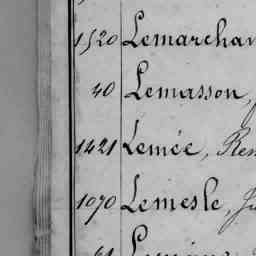 1520 Lemarchan
40 Lemasson,
1421 Lemée, Ren
1070 Lemesle,